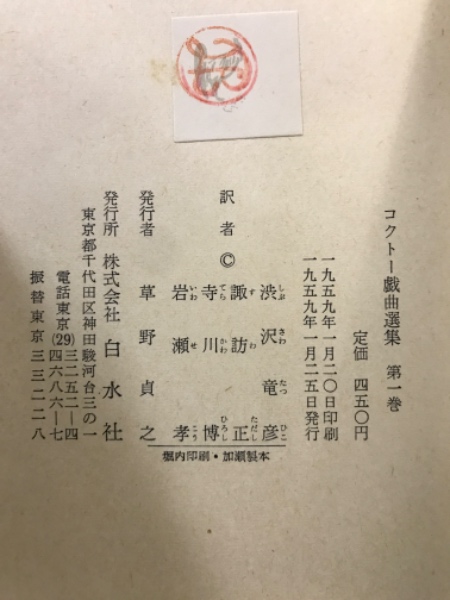 コクトー戯曲選集　第一巻
定価　四五〇円
一九五九年一月二〇日印刷
一九五九年一月二五日発行
訳者　©　渋沢竜彦
しぶさわたつひこ
諏訪正
すわただし
寺川博
てらかわひろし
岩瀬孝
いわせこう
発行者　草野貞之
発行所　株式会社　白水社
東京都千代田区神田駿河台三の一
電話東京(29)三二五二—四
四六八六—七
振替東京三三二二八
堀内印刷・加瀬製本